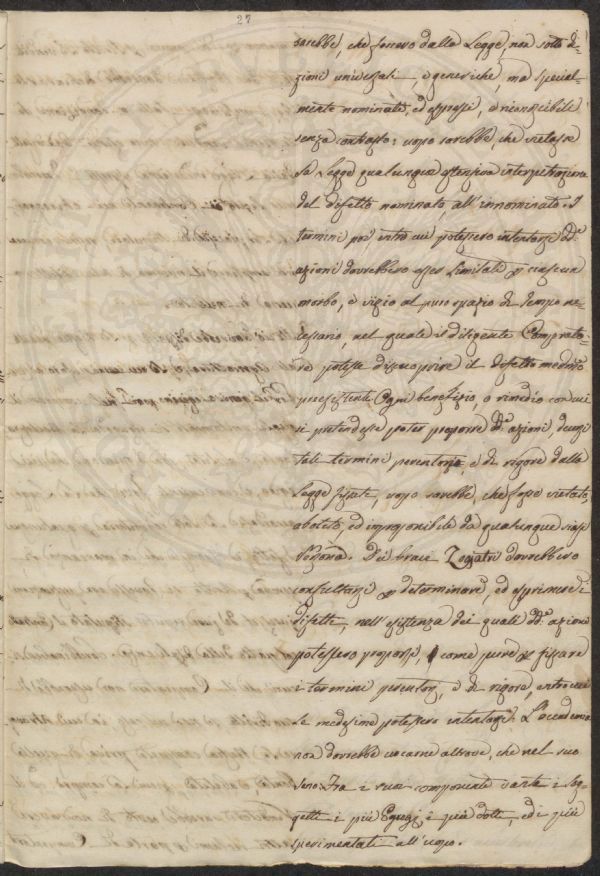 27
sarebbe, che fossero dalla Legge, non sotto di=
zioni universali, e generiche, ma special=
mente nominate, ed espressi, e riconoscibili
senza contrasto: uopo sarebbe, che vietasse
la Legge qualunque estensiva interpretrazione
del difetto nominato, all'innominato. I
termini poi entro cui potessero intentarsi dd.e
azioni dovrebbero esser limitati per ciascun
morbo, e vizio al puro spazio di tempo ne=
cessario, nel quale il diligente Comprato=
re potesse discuoprire il difetto medmo
preesistente. Ogni benefizio, o rimedio con cui
si pretendesse poter proporre dd.e azioni, decorsi
tali termini perentorj, e di rigore dalla
Legge fissati, uopo sarebbe, che fosse vietato,
abolito, ed improponibile da qualunque siasi
Persona. Dei bravi Zoojatri dovrebbero
consultarsi per determinare, ed esprimere i
difetti, nell'esistenza dei quali dd.e azioni
potessero proporsi, come pure per fissare
i termini perentorj, e di rigore, entro cui
le medesime potessero intentarsi. L'accademia
non dovrebbe cercarne altrove, che nel suo
seno: Fra i suoi componenti vanta i sog=
getti i più Egregj, i più dotti, ed i più
sperimentati all'uopo.